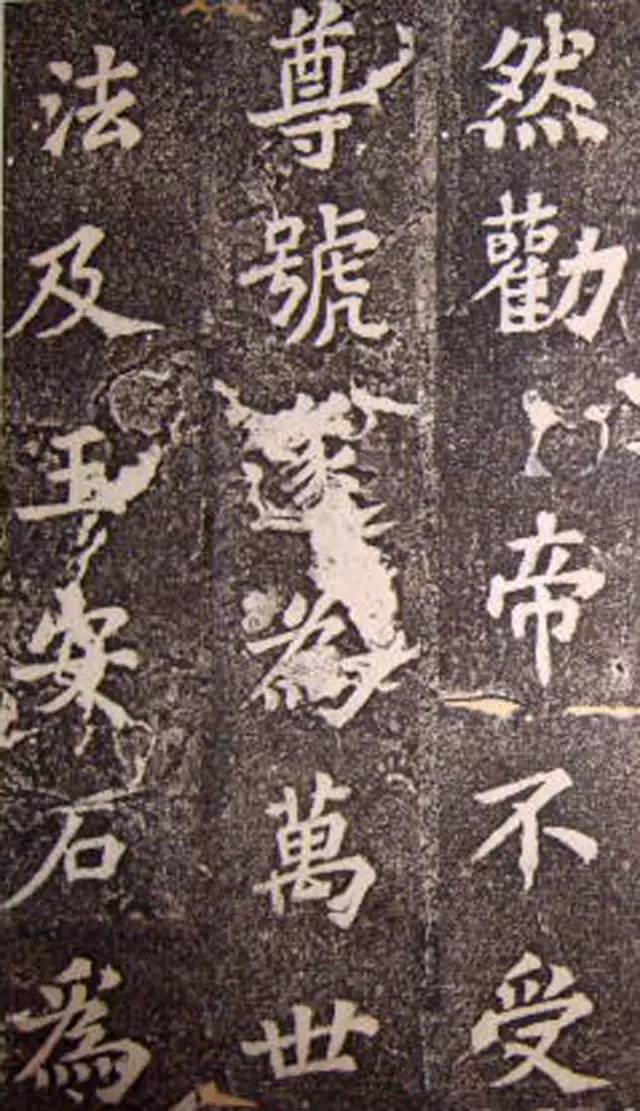 然勸帝不受
尊號遂為萬世
法及王安石為